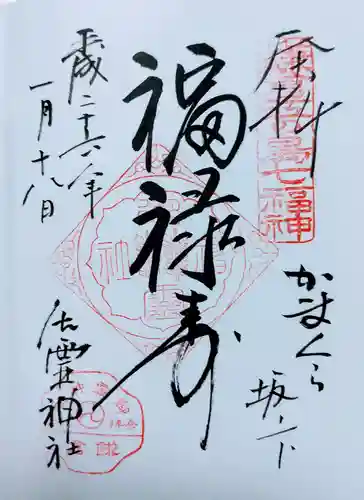 奉拝
かまくら
坂ノ下
福禄寿
平成二十六年
一月十八日
御霊神社
七福神